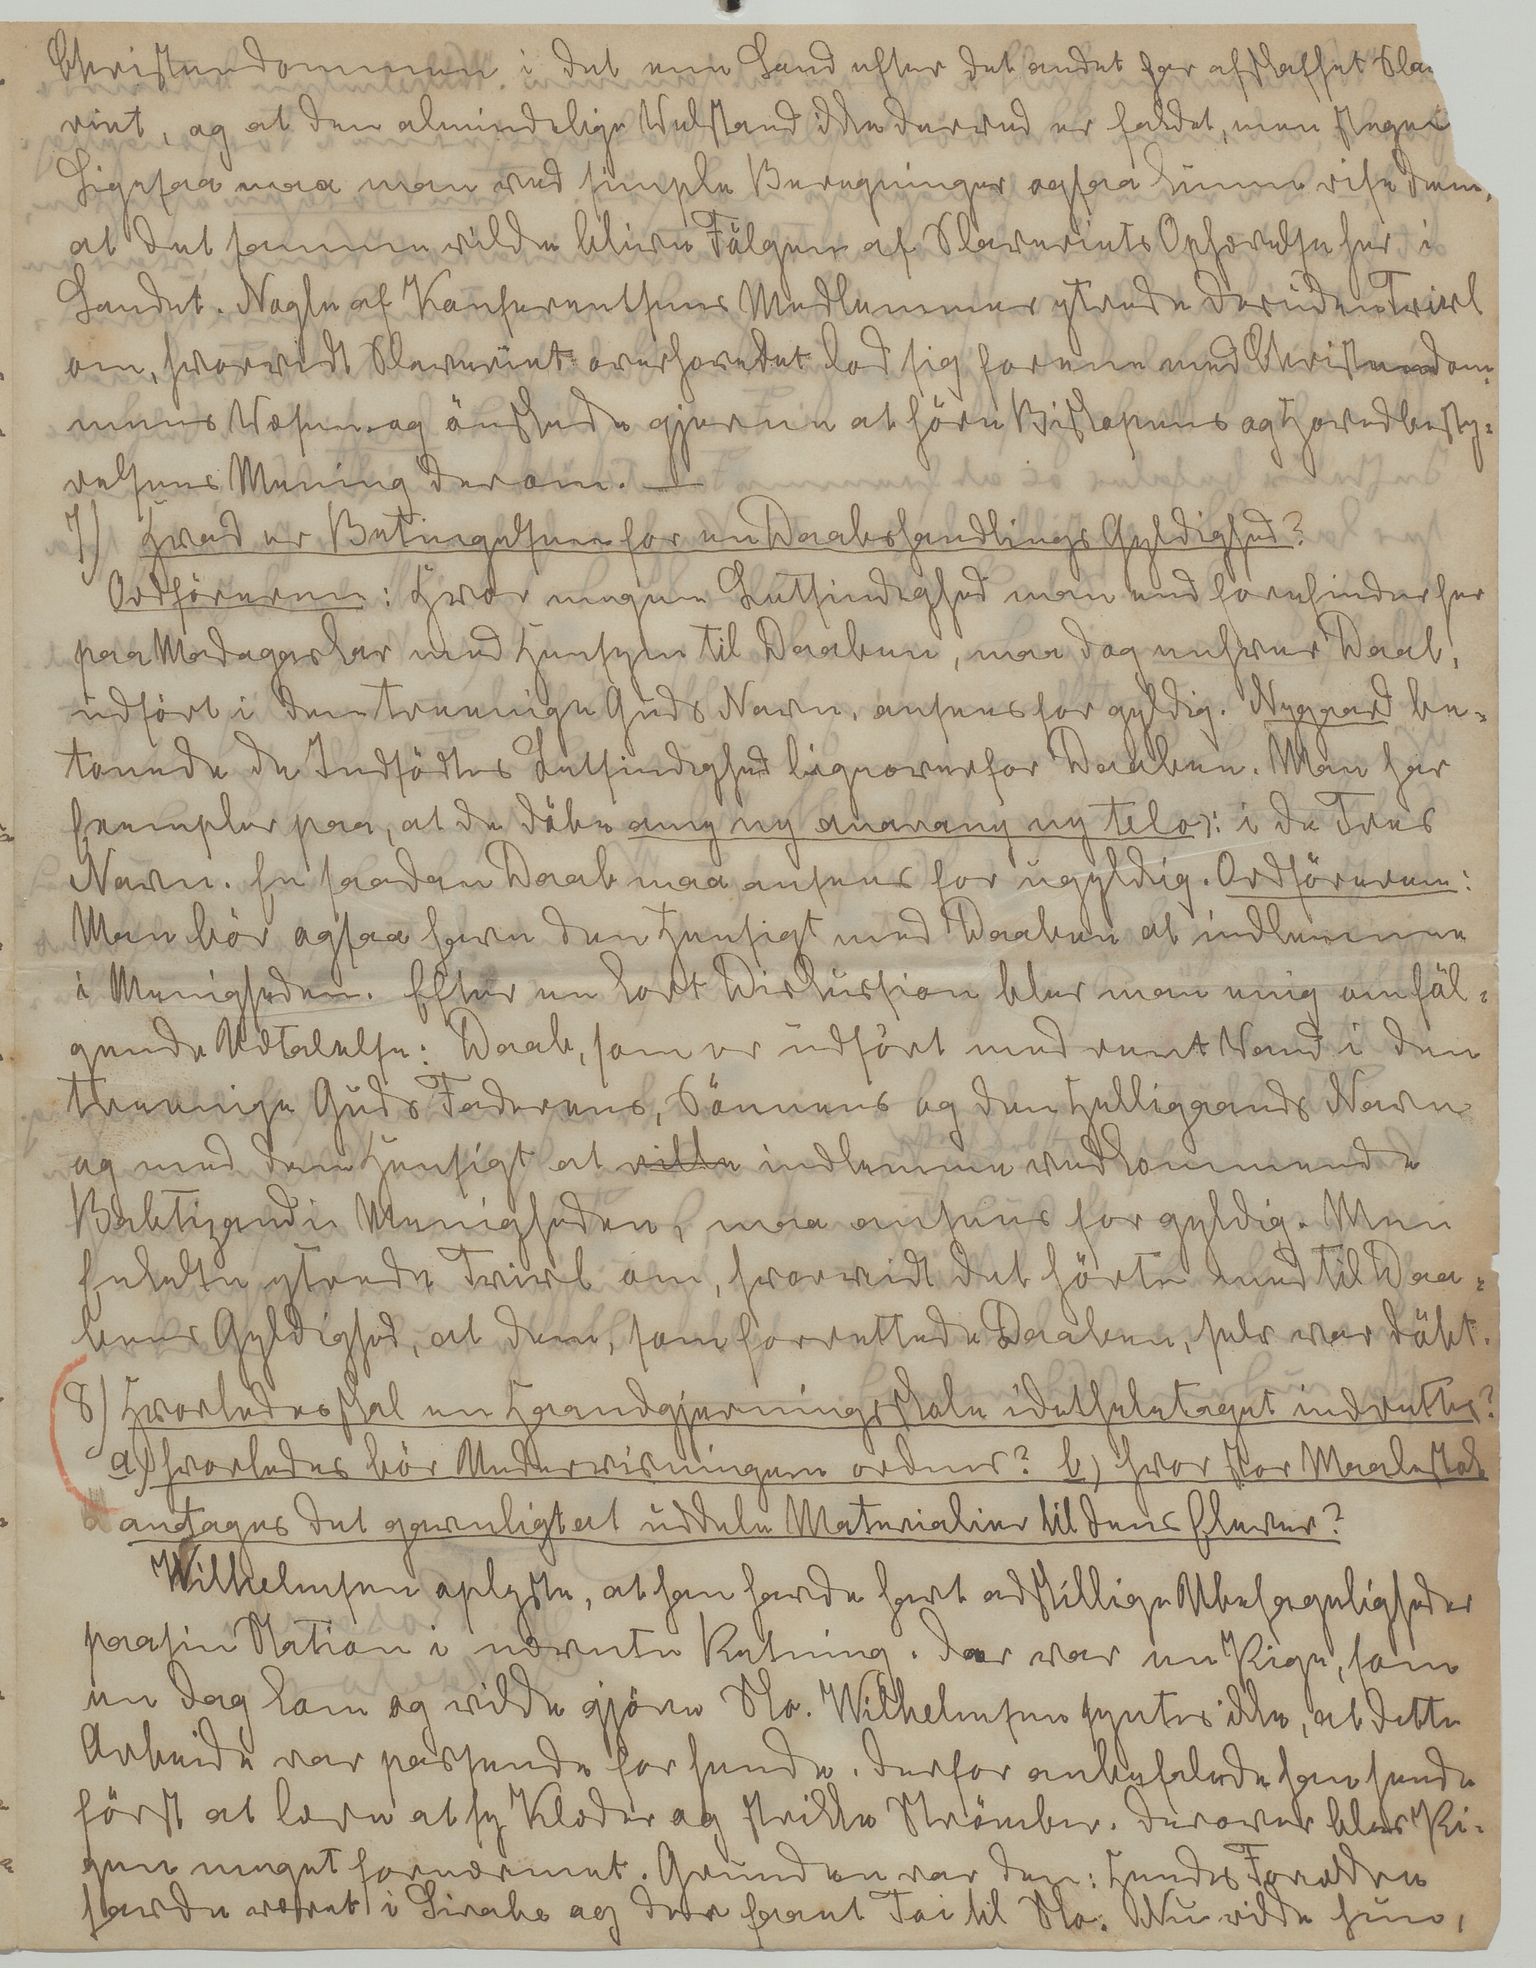 Christendommen i det ene Land efter det andet har afskaffet Sla
veriet, og at den almindelige Velstand ikke derved er faldet, men steget
Ligesaa maa man ved simple Beregninger ogsaa kunne vise dem,
at det samme vilde blive Fölgen af Slaveriets Ophævelse her i
Landet. Nogle af Konferentsens Medlemmer ytrede desuden Tvivl
om, hvorvidt Slaveriet overhovedet lod sig forene med Christendom=
mens Væsen og önskede gjerne at höre Biskopens og Hovedbesty=
relsens Mening derom. —
7) Hvad er Betingelsen for en Daabshandlings Gyldighed?
Ordföreren: Hvor megen Letsindighed man end forefinder her
paa Madagaskar med Hensyn til Daaben, maa dog enhver Daab,
udfört i den treenige Guds Navn, ansees for gyldig. Nygaard be=
tonede de Indfödtes Letsindighed ligeoverfor Daaben. Man har
Exempler paa, at de döbe amy ny anarany ny telo ɔ: i de Tres
Navn. En saadan Daab maa ansees for ugyldig. Ordföreren:
Man bör ogsaa have den Hensigt med Daaben at indlemme
i Menigheden. Efter en kort Diskussion blev man enig om föl=
gende Udtalelse: Daab, som er udfört med rent Vand i den
treenige Guds Faderens, Sönnens og den Helligaands Navn
og med den Hensigt at ville indlemme vedkommende
Babtizand i Menigheden, maa ansees for gyldig. Men
Enkelte ytrede Tvivl om, hvorvidt det hörte med til Daa=
bens Gyldighed, at den, som forrettede Daaben, selv var döbt.
8) Hvorledes skal en Haandgjerningsskole idethele taget indrettes?
a) hvorledes bör Undervisningen ordnes? b) hvor stor Maalestok
antages det gavnligt at uddele Materialier til dens Elever?
Wilhelmsen oplyste, at han havde havt adskillige Ubehageligheder
paa sin Station i nævnte Retning. Der var en Pige, som
en Dag kom og vilde gjöre Sko. Wilhelmsen syntes ikke, at dette
Arbeide var passende for hende. Derfor anbefalede han hende
först at lære at sy Klæder og strikke Strömber. Derover blev Pi=
gen meget fornærmet. Grunden var den: Hendes Forældre
havde været i Sirabe og der faaet Tøi til Sko. Nu vilde hun,